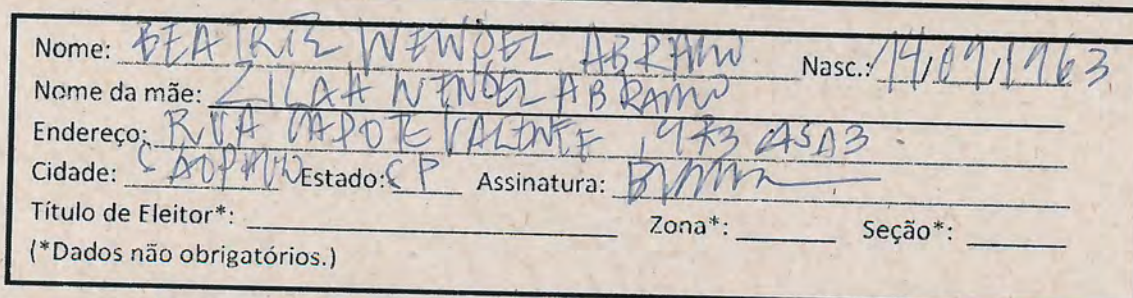 Nome: BEATRIZ WENDEL ABRAMO Nasc.: 14/09/1963
Nome da mãe: ZILAH WENDEL ABRAMO
Endereço: RUA CAPOTE VALENTE, 973 CASA3
Cidade: SAO PAULO Estado: SP Assinatura:
Título de Eleitor*: Zona*: Seção*:
(*Dados não obrigatórios.)